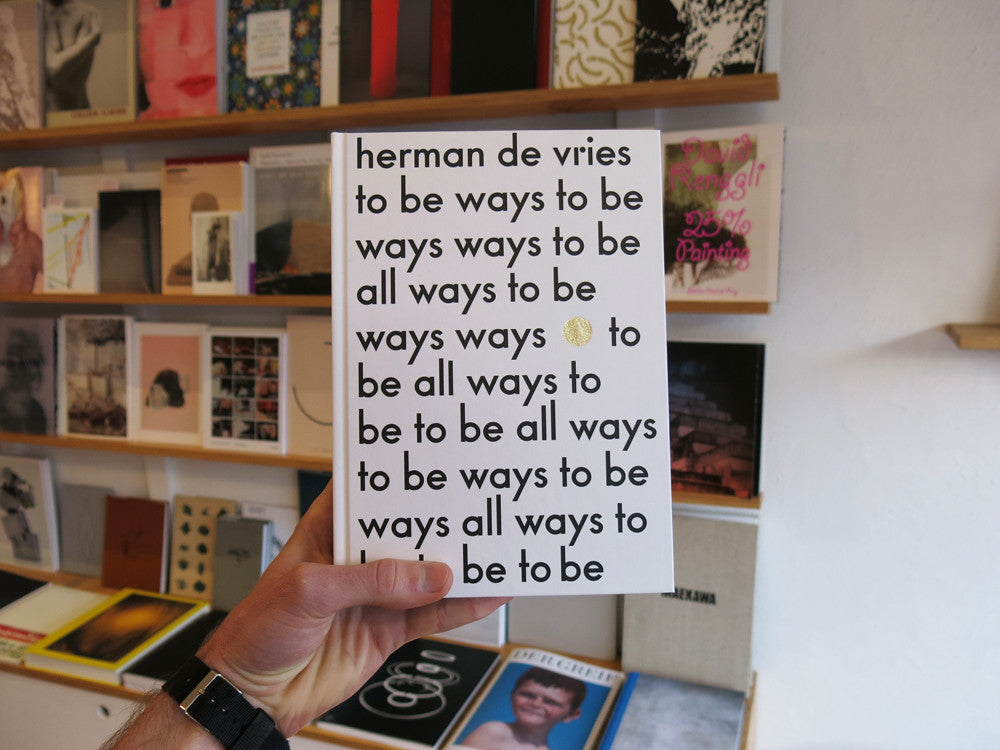 herman de vries
to be ways to be
ways ways to be
all ways to be
ways ways to
be all ways to
be to be all ways
to be ways to be
ways all ways to
be to be
David
Renggli
25%
Painting
MAEKAWA
DER GREIF